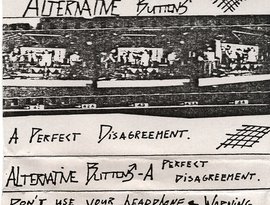 ALTERNATIVE BUTTONS
A PERFECT DISAGREEMENT.
ALTERNATIVE BUTTONS - A PERFECT DISAGREEMENT.
DON'T USE YOUR HEADPHONE & WARNING